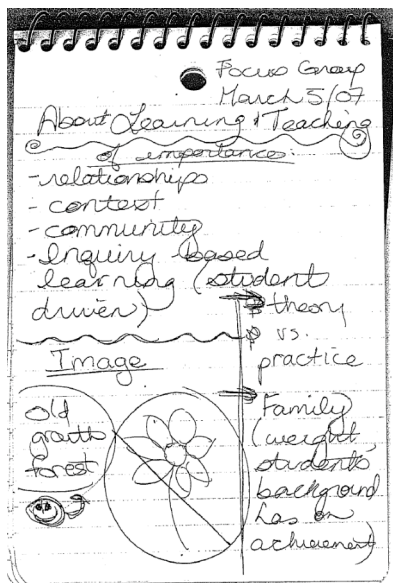 Focus Group
March 5/07
About Learning & Teaching
of importances:
-relationships
- context
- community
- Inquiry based
learning (student
driven)
theory
vs.
practice
Image
old
growth
forest
Family
(weight
students'
background
has on
achievement)